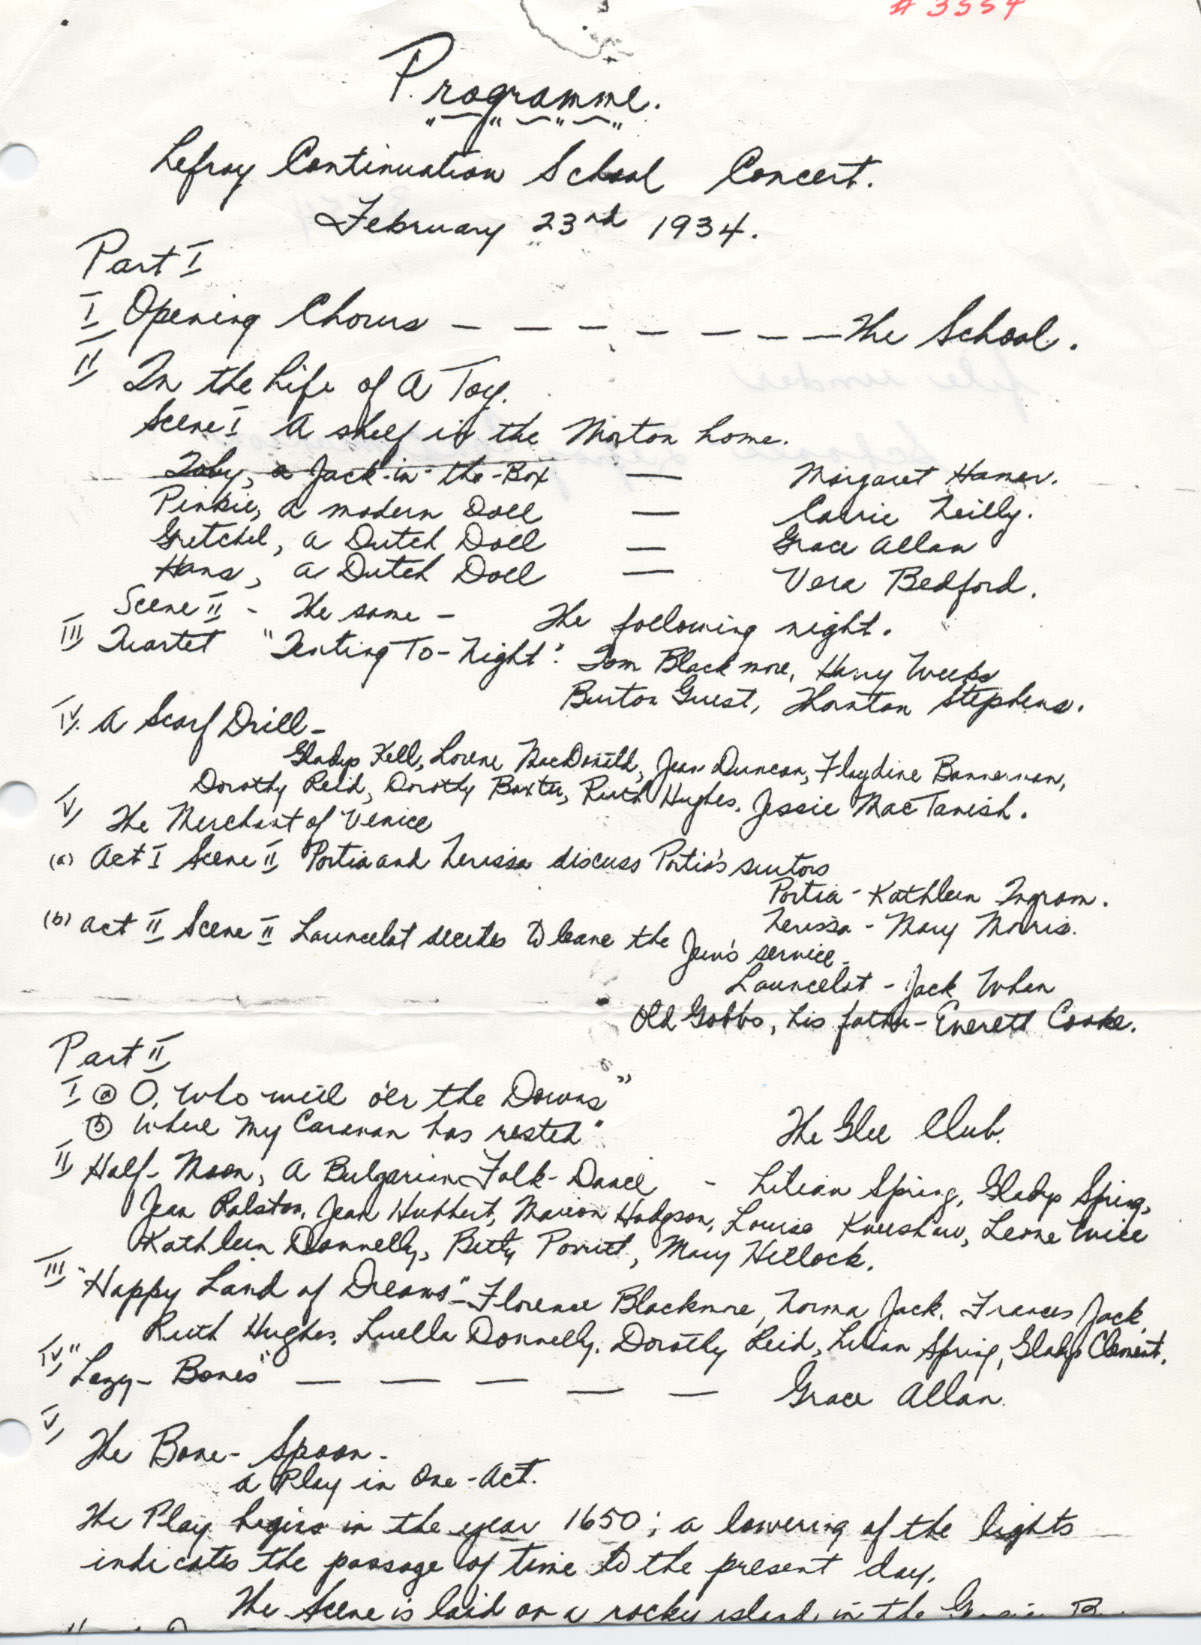 # 3554
Programme.
Lefroy Continuation School Concert.
February 23rd 1934.
Part I
I Opening Chorus — — — — — — — The School.
II In the Life of A Toy.
Scene I A shelf in the Morton home.
Toby, a Jack-in-the-Box — Margaret Hamer.
Pinkie, a modern Doll — Carrie Neilly.
Gretchel, a Dutch Doll — Grace Allan
Hans, a Dutch Doll — Vera Bedford.
Scene II - The same - The following night.
III Quartet "Tenting To-Night". Tom Blackmore, Harry Weeks
Burton Guest, Thornton Stephens.
IV. A Scarf Drill -
Gladys Kell, Lorene MacDonald, Jean Duncan, Flaydine Bannerman,
Dorothy Reid, Dorothy Baxter, Ruth Hughes, Jessie MacTavish.
V The Merchant of Venice
(a) Act I Scene II Portia and Nerissa discuss Portia's suitors
Portia - Kathleen Ingram.
Nerissa - Mary Morris.
(b) Act II Scene II Launcelot decides to leave the Jew's service.
Launcelot - Jack Whan
Old Gobbo, his father - Everett Cooke.
Part II
I (a) O, Who will o'er the Downs"
(b) Where My Caravan has rested" The Glee Club.
II Half-Moon, A Bulgarian Folk-Dance - Lilian Spring, Gladys Spring,
Jean Ralston, Jean Hubbert, Marion Hodgson, Louise Kneeshaw, Leone
Kathleen Donnelly, Betty Porritt, Mary Hillock.
III "Happy Land of Dreams" - Florence Blackmore, Norma Jack, Frances Jack,
Ruth Hughes, Luella Donnelly, Dorothy Reid, Lilian Spring, Gladys Clement.
IV "Lazy-Bones" — — — — — Grace Allan
V The Bone-Spoon -
A Play in One-Act.
The Play begins in the year 1650; a lowering of the lights
indicates the passage of time to the present day.
The Scene is laid on a rocky island in the